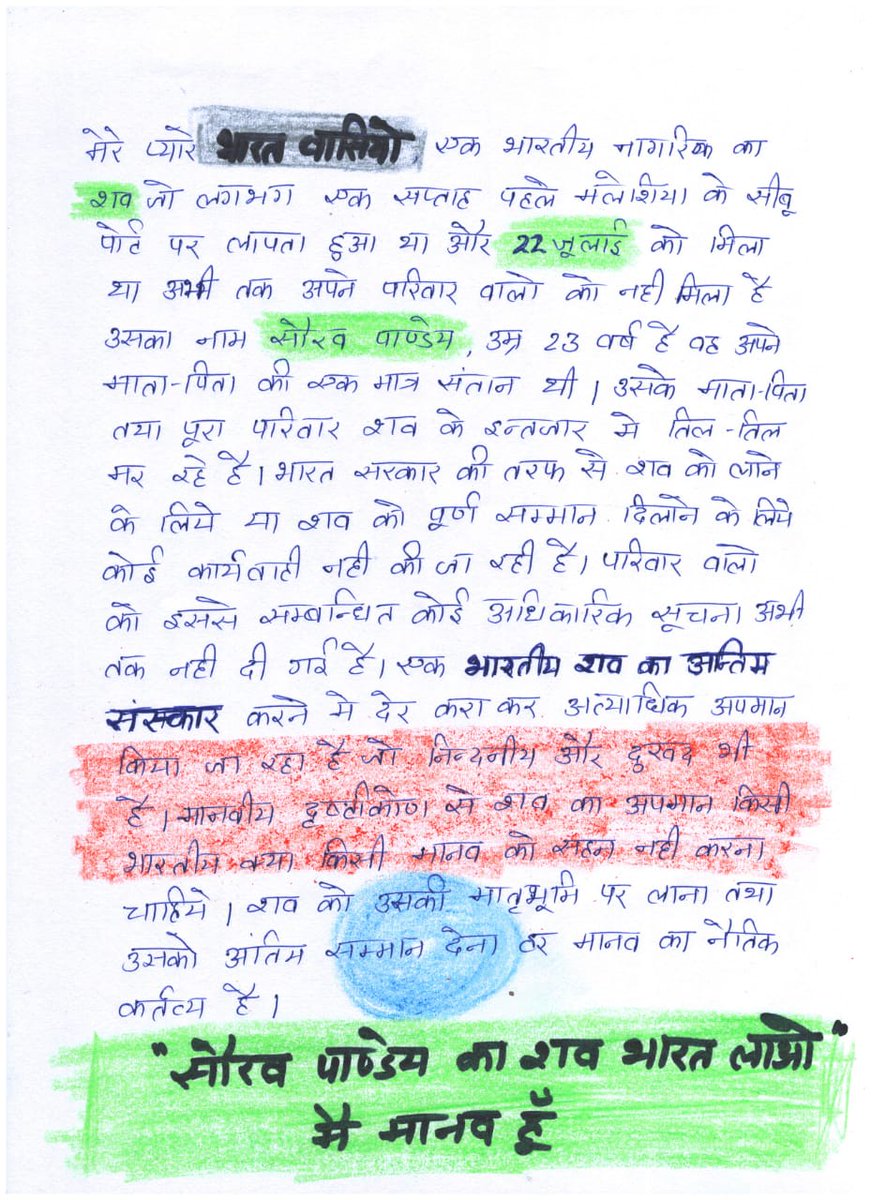 मेरे प्यारे भारत वासियो, एक भारतीय नागरिक का
शव जो लगभग एक सप्ताह पहले मलेशिया के सीबू
पोर्ट पर लापता हुआ था और 22 जूलाई को मिला
था अभी तक अपने परिवार वालो को नही मिला है
उसका नाम सौरव पाण्डेय, उम्र 23 वर्ष है वह अपने
माता-पिता की एक मात्र संतान थी। उसके माता-पिता
तथा पूरा परिवार शव के इन्तजार मे तिल-तिल
मर रहे है। भारत सरकार की तरफ से शव को लाने
के लिये या शव को पूर्ण सम्मान दिलाने के लिये
कोई कार्यवाही नही की जा रही है। परिवार वालो
को इससे सम्बन्धित कोई अधिकारिक सूचना अभी
तक नही दी गई है। एक भारतीय शव का अन्तिम
संस्कार करने मे देर करा कर अत्याधिक अपमान
किया जा रहा है जो निन्दनीय और दुखद भी
है। मानवीय दृष्टीकोण से शव का अपमान किसी
भारतीय क्या किसी मानव को सहन नही करना
चाहिये। शव को उसकी मातृभूमि पर लाना तथा
उसको अंतिम सम्मान देना हर मानव का नैतिक
कर्तव्य है।
"सौरव पाण्डेय का शव भारत लाओ"
मै मानव हूँ